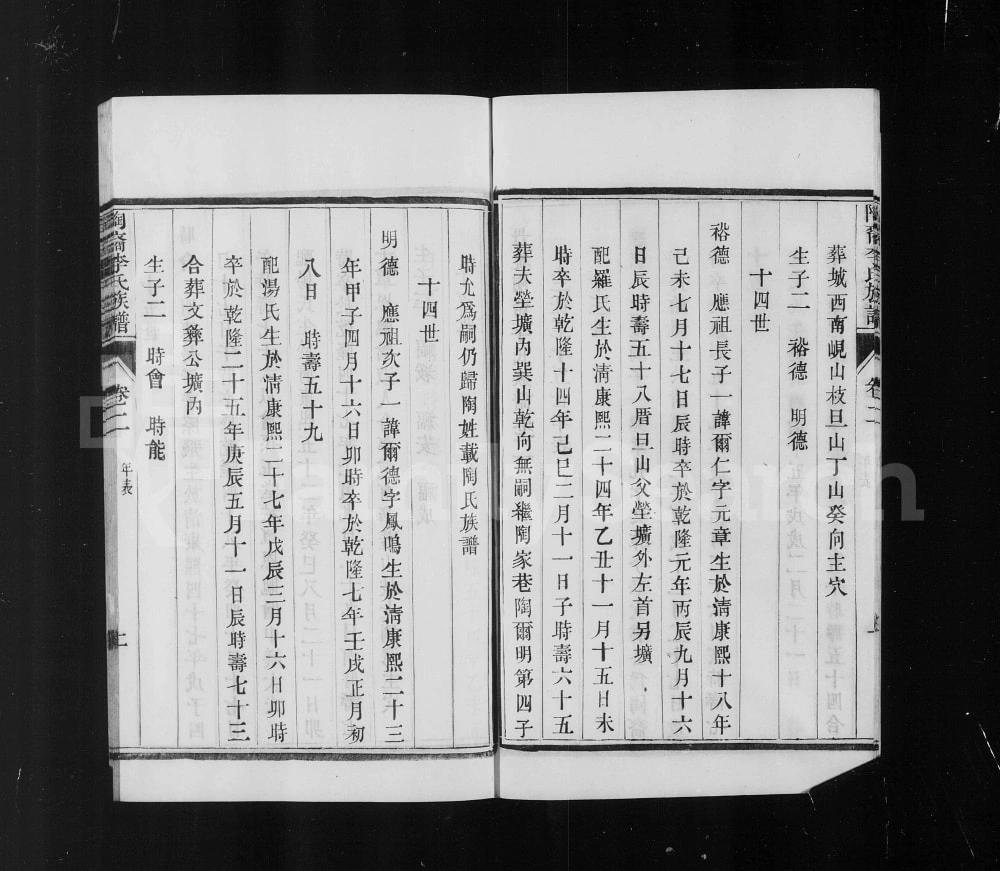 葬城西南峴山枝旦山丁山癸向主穴
生子二 裕德 明德
十四世
裕德 應祖長子一諱爾仁字元章生於淸康熙十八年
己未七月十七日辰時卒於乾隆元年丙辰九月十六
日辰時壽五十八厝旦山父塋壙外左首另壙
配羅氏生於淸康熙二十四年乙丑十一月十五日未
時卒於乾隆十四年己巳二月十一日子時壽六十五
葬夫塋壙內巽山乾向無嗣繼陶家巷陶爾明第四子
時允爲嗣仍歸陶姓載陶氏族譜
十四世
明德 應祖次子一諱爾德字鳳鳴生於淸康熙二十三
年甲子四月十六日卯時卒於乾隆七年壬戌正月初
八日 時壽五十九
配湯氏生於淸康熙二十七年戊辰三月十六日卯時
卒於乾隆二十五年庚辰五月十一日辰時壽七十三
合葬文彝公壙內
生子二 時會 時能
陶裔李氏族譜 卷二 年表